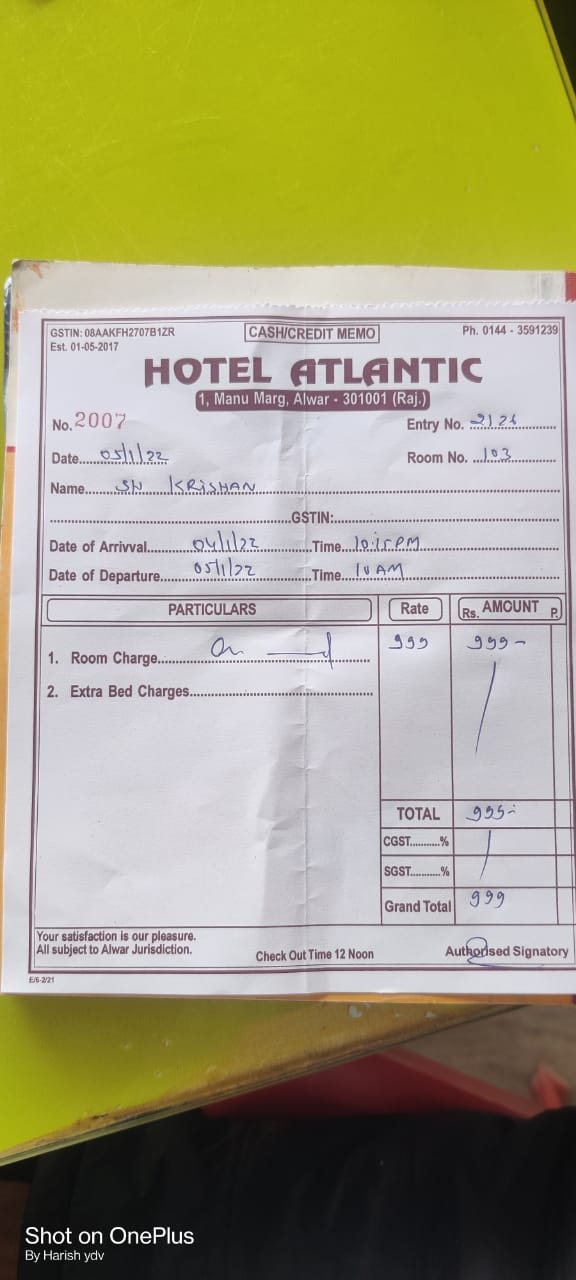 GSTIN: 08AAKFH2707B1ZR CASH/CREDIT MEMO Ph. 0144 - 3591239
Est. 01-05-2017
HOTEL ATLANTIC
1, Manu Marg, Alwar - 301001 (Raj.)
No. 2007 Entry No. 2126
Date 05/1/22 Room No. 103
Name SH KRISHAN
GSTIN:
Date of Arrivval 04/1/22 Time 10:15 PM
Date of Departure 05/1/22 Time 10 AM
PARTICULARS Rate Rs. AMOUNT P.
1. Room Charge 999 999-
2. Extra Bed Charges
TOTAL 999-
CGST..........%
SGST..........%
Grand Total 999
Your satisfaction is our pleasure.
All subject to Alwar Jurisdiction. Check Out Time 12 Noon Authorised Signatory
E/6-2/21
Shot on OnePlus
By Harish ydv